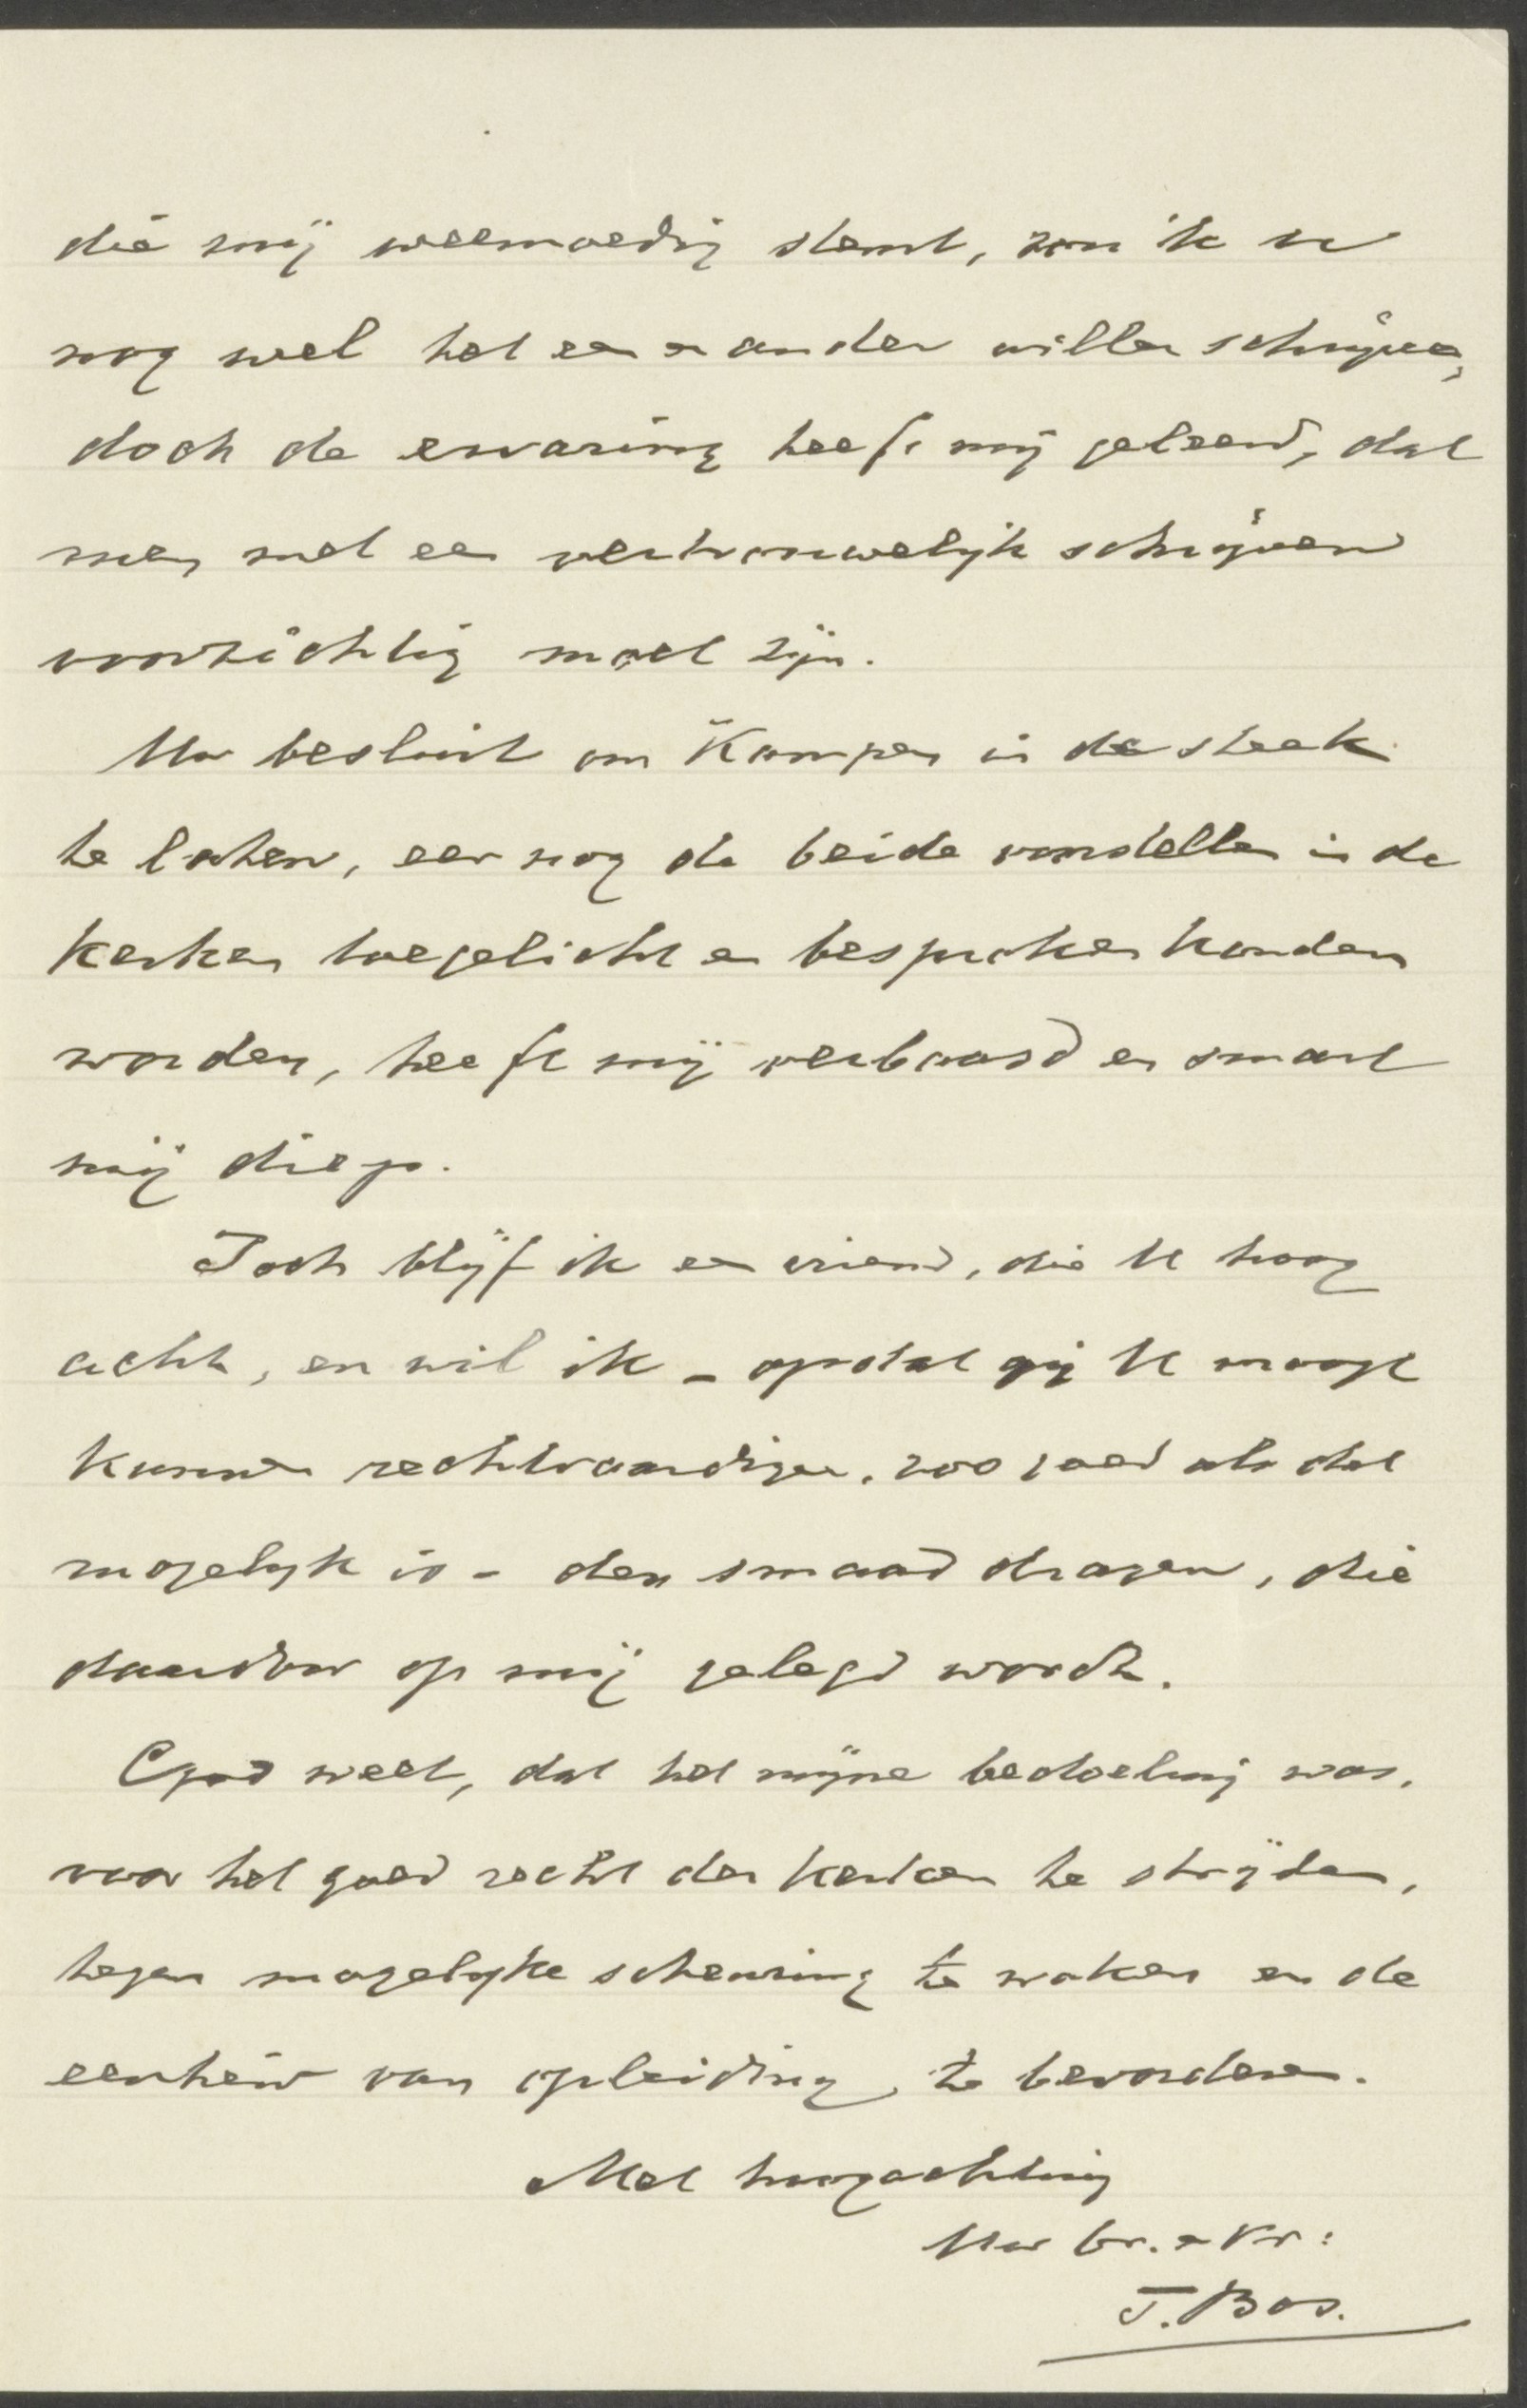 die mij weemoedig stemt, zou ik u
nog wel het een en ander willen schrijven,
doch de ervaring heeft mij geleerd, dat
men met een vertrouwelijk schrijven
voorzichtig moet zijn.
Uw besluit om Kampen in de steek
te laten, eer nog de beide voorstellen in de
Kerken toegelicht en besproken konden
worden, heeft mij verbaasd en smart
mij diep.
Toch blijf ik een vriend, die U hoog
acht, en wil ik – opdat gij U moogt
kunnen rechtvaardigen, zoo goed als dat
mogelijk is – den smaad dragen, die
daardoor op mij gelegd wordt.
God weet, dat het mijne bedoeling was,
voor het goed recht der kerken te strijden,
tegen mogelijke scheuring te waken en de
eenheid van opleiding te bevorderen.
Met hoogachting
Uw br. en vr:
T. Bos.